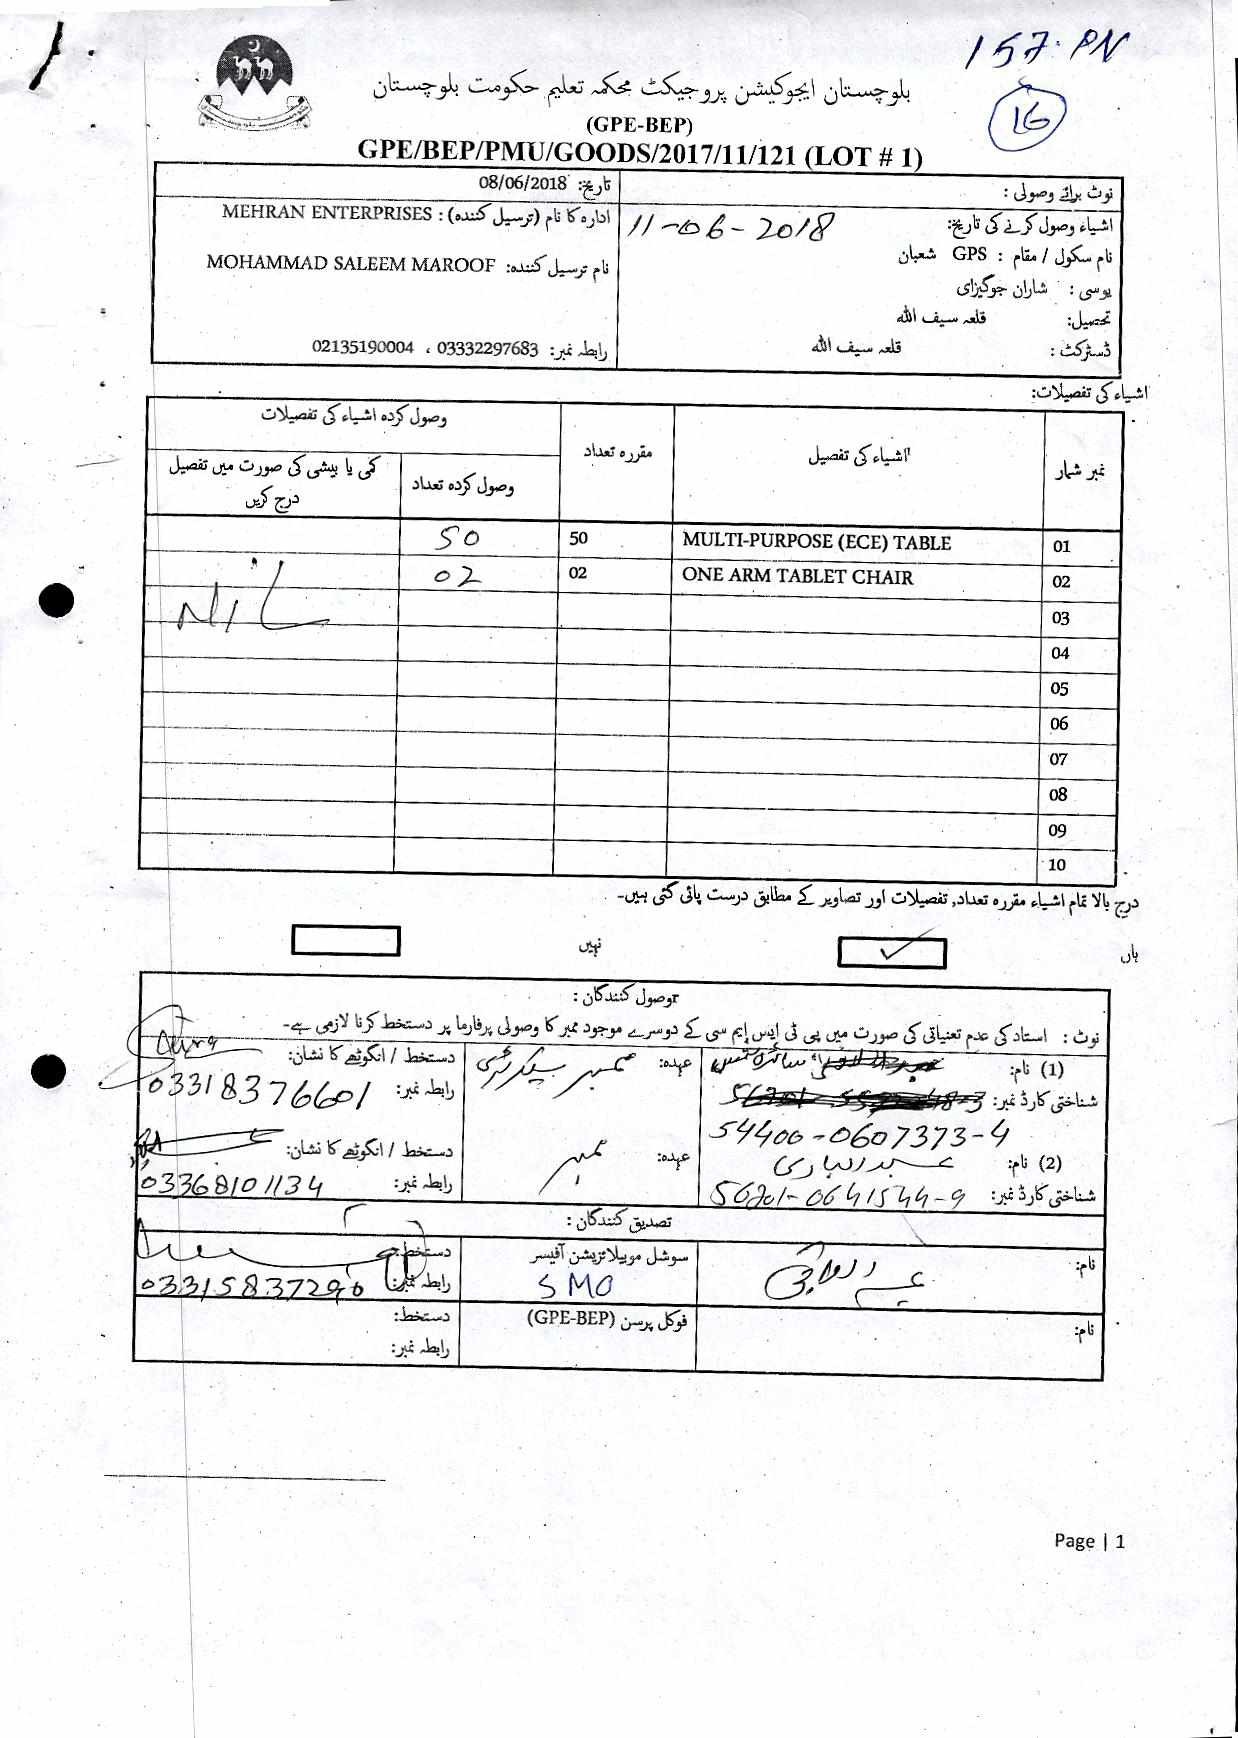 157. PN
16
بلوچستان ایجوکیشن پروجیکٹ محکمہ تعلیم حکومت بلوچستان
(GPE-BEP)
GPE/BEP/PMU/GOODS/2017/11/121 (LOT # 1)
نوٹ برائے وصولی :
تاریخ: 08/06/2018
اشیاء وصول کرنے کی تاریخ: 11-06-2018
ادارہ کا نام (ترسیل کنندہ) : MEHRAN ENTERPRISES
نام سکول / مقام : GPS شعبان
نام ترسیل کنندہ: MOHAMMAD SALEEM MAROOF
یوسی : شاران جوگیزای
تحصیل: قلعہ سیف اللہ
ڈسٹرکٹ : قلعہ سیف اللہ
رابطہ نمبر: 03332297683 ، 02135190004
اشیاء کی تفصیلات:
نمبر شمار اشیاء کی تفصیل مقررہ تعداد وصول کردہ اشیاء کی تفصیلات
وصول کردہ تعداد کمی یا بیشی کی صورت میں تفصیل درج کریں
01 MULTI-PURPOSE (ECE) TABLE 50 50
02 ONE ARM TABLET CHAIR 02 02
Nil
03
04
05
06
07
08
09
10
درج بالا تمام اشیاء مقررہ تعداد, تفصیلات اور تصاویر کے مطابق درست پائی گئی ہیں۔
ہاں ✓ نہیں
وصول کنندگان :
نوٹ : استاد کی عدم تعیناتی کی صورت میں پی ٹی ایس ایم سی کے دوسرے موجود ممبر کا وصولی پرفارما پر دستخط کرنا لازمی ہے۔
(1) نام: عہدہ: ممبر سیکرٹری دستخط / انگوٹھے کا نشان:
شناختی کارڈ نمبر: 54400-0607373-4 رابطہ نمبر: 03318376601
(2) نام: عبدالباری عہدہ: ممبر دستخط / انگوٹھے کا نشان:
شناختی کارڈ نمبر: 56201-0641544-9 رابطہ نمبر: 03368101134
تصدیق کنندگان :
نام: سوشل موبیلائزیشن آفیسر دستخط:
SMO رابطہ نمبر: 03315837296
نام: فوکل پرسن (GPE-BEP) دستخط:
رابطہ نمبر:
Page | 1